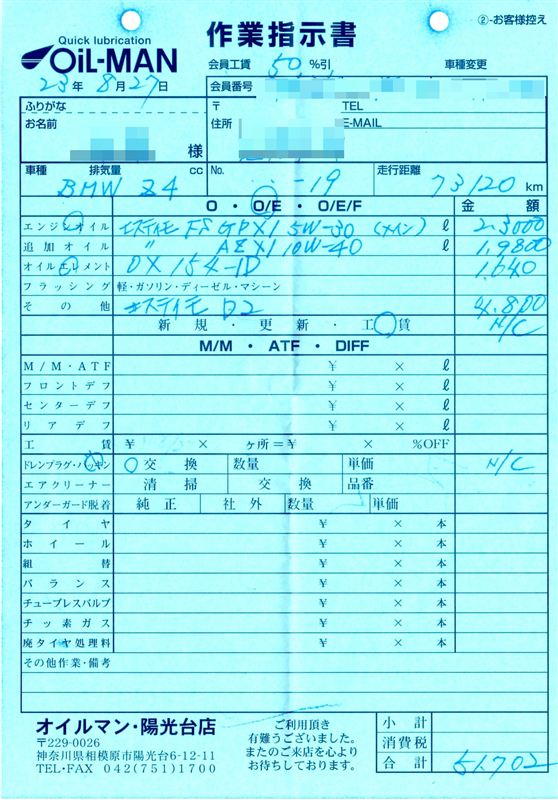 ②-お客様控え
Quick lubrication
OiL-MAN
作業指示書
会員工賃 50 %引 車種変更
23年 8月 27日
会員番号
ふりがな
〒 TEL
お名前 様
住所 E-MAIL
車種 排気量 cc No. 走行距離
BMW Z4 -19 73120 km
O ・ O/E ・ O/E/F 金額
エンジンオイル エステイモ FS GPX1 5W-30 (メイン) ℓ 23000
追加オイル 〃 AZX1 10W-40 ℓ 1,9800
オイルエレメント OX 154-1D 1,640
フラッシング 軽・ガソリン・ディーゼル・マシーン
その他 エステイモ D2 4,800
新規・更新・工賃 N/C
M/M ・ ATF ・ DIFF
M/M・ATF ¥ × ℓ
フロントデフ ¥ × ℓ
センターデフ ¥ × ℓ
リアデフ ¥ × ℓ
工賃 ¥ × ヶ所=¥ × %OFF
ドレンプラグ・パッキン 交換 数量 単価 N/C
エアクリーナー 清掃 交換 品番
アンダーガード脱着 純正 社外 数量 単価
タイヤ ¥ × 本
ホイール ¥ × 本
組替 ¥ × 本
バランス ¥ × 本
チューブレスバルブ ¥ × 本
チッ素ガス ¥ × 本
廃タイヤ処理料 ¥ × 本
その他作業・備考
オイルマン・陽光台店
〒229-0026
神奈川県相模原市陽光台6-12-11
TEL・FAX 042(751)1700
ご利用頂き
有難うございました。
またのご来店を心より
お待ちしております。
小計
消費税
合計 51,702